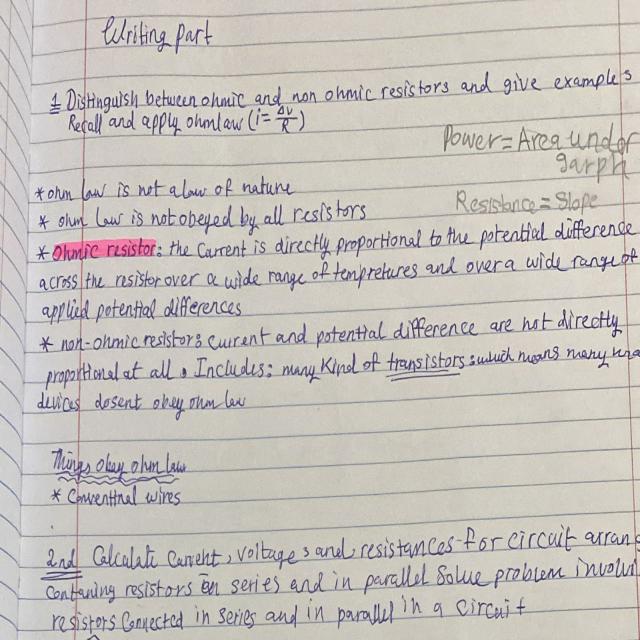 Writing part
1 Distinguish between ohmic and non ohmic resistors and give examples
Recall and apply ohm law (i = Δv/R)
Power = Area under
garph
* ohm law is not a law of nature
Resistance = Slope
* ohm law is not obeyed by all resistors
* Ohmic resistor: the current is directly proportional to the potential difference
across the resistor over a wide range of tempretures and over a wide range of
applied potential differences
* non-ohmic resistor: current and potential difference are not directly
proportional at all. Includes: many Kind of transistors: which means many
devices dosent obey ohm law
Things obay ohm law
* Conventinal wires
2nd Calculate Current, voltages and, resistances for circuit arran
Contaning resistors in series and in parallel Solve problem involvi
resistors Connected in series and in parallel in a circuit